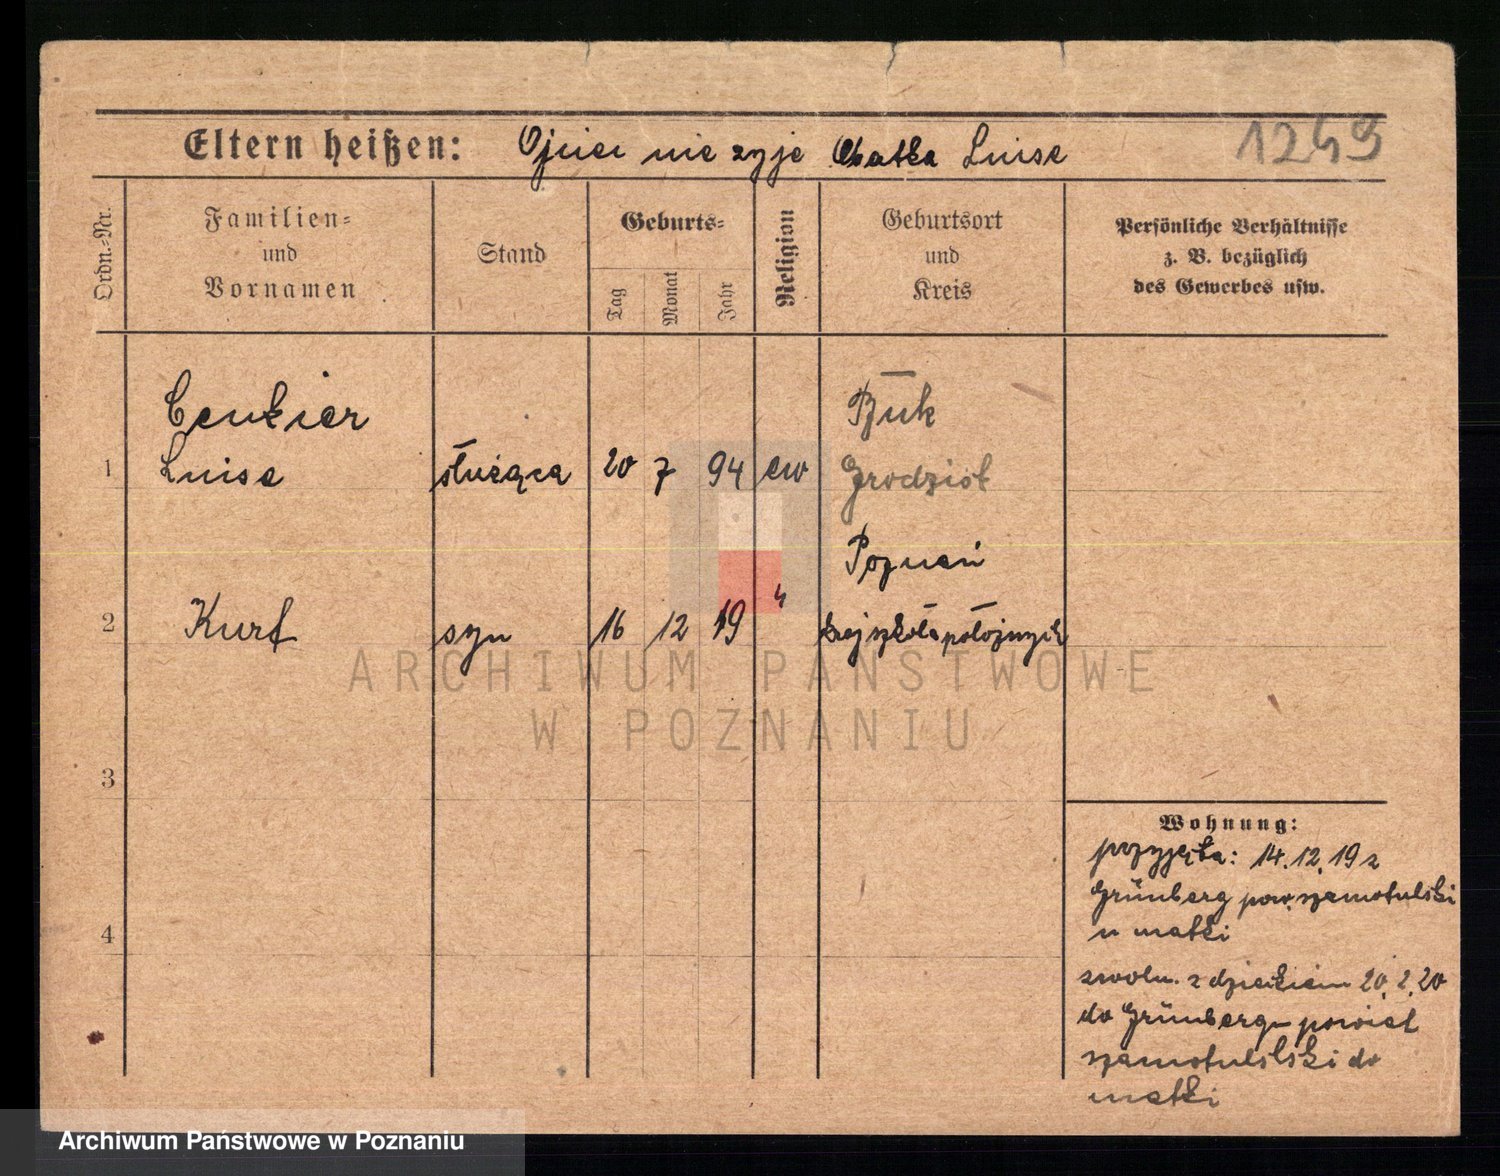 Eltern heißen: Ojciec nie żyje Matka Luise 1249
Ordn.-Nr.
Familien- und Vornamen
Stand
Geburts-
Tag
Monat
Jahr
Religion
Geburtsort und Kreis
Persönliche Verhältnisse z. B. bezüglich des Gewerbes usw.
Buk
1 Luise służąca 20 7 94 ew Grodzisk
Poznań
2 Kurt syn 16 12 19 " kraj szkoła położnych
3
4
Wohnung:
przyjęta: 14.12.19 z
Grünberg pow. szamotulski
u matki
zwoln. z dzieckiem 20.2.20
do Grünberg powiat
szamotulslski do
matki
ARCHIWUM PAŃSTWOWE
W POZNANIU
Archiwum Państwowe w Poznaniu